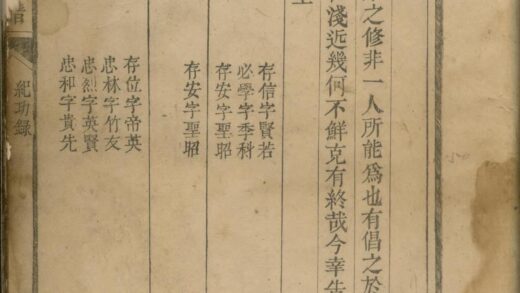 之修非一人所能爲也有倡之於
淺近幾何不鮮克有終哉今幸
存信字賢若
必學字季科
存安字聖昭
存安字聖昭
存位字帝英
忠林字竹友
忠烈字英賢
忠和字貴先
紀功錄